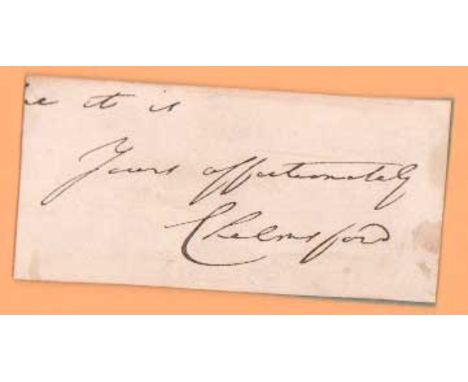 it is
Yours affectionately
Chelmsford